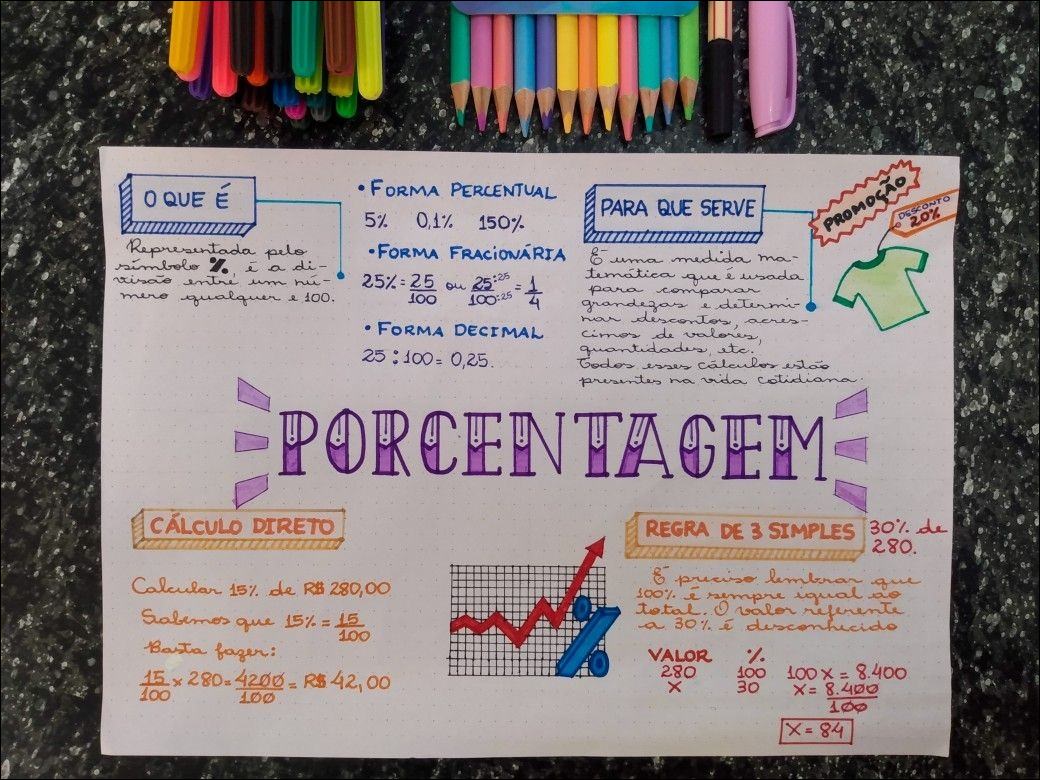 O QUE É
Representada pelo
símbolo %, é a di-
visão entre um nú-
mero qualquer e 100.
• FORMA PERCENTUAL
5% 0,1% 150%
• FORMA FRACIONÁRIA
25% = 25/100 ou 25:25/100:25 = 1/4
• FORMA DECIMAL
25 : 100 = 0,25.
PARA QUE SERVE
É uma medida ma-
temática que é usada
para comparar
grandezas e determi-
nar descontos, acrés-
cimos de valores,
quantidades, etc.
Todos esses cálculos estão
presentes na vida cotidiana.
PROMOÇÃO
DESCONTO
20%
PORCENTAGEM
CÁLCULO DIRETO
Calcular 15% de R$ 280,00
Sabemos que 15% = 15/100
Basta fazer:
15/100 x 280 = 4200/100 = R$ 42,00
%
REGRA DE 3 SIMPLES
30% de
280.
É preciso lembrar que
100% é sempre igual ao
total. O valor referente
a 30% é desconhecido
VALOR %
280 100
X 30
100 X = 8.400
X = 8.400/100
X = 84